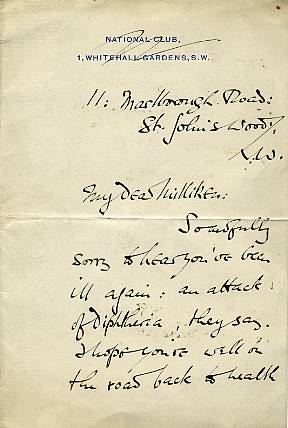 NATIONAL CLUB,
1, WHITEHALL GARDENS, S.W.
11: Marlborough Road:
St. John's Wood,
N.W.
My dear Milliken:
So awfully
sorry to hear you've been
ill again: an attack
of diphtheria, they say.
I hope you're well on
the road back to health